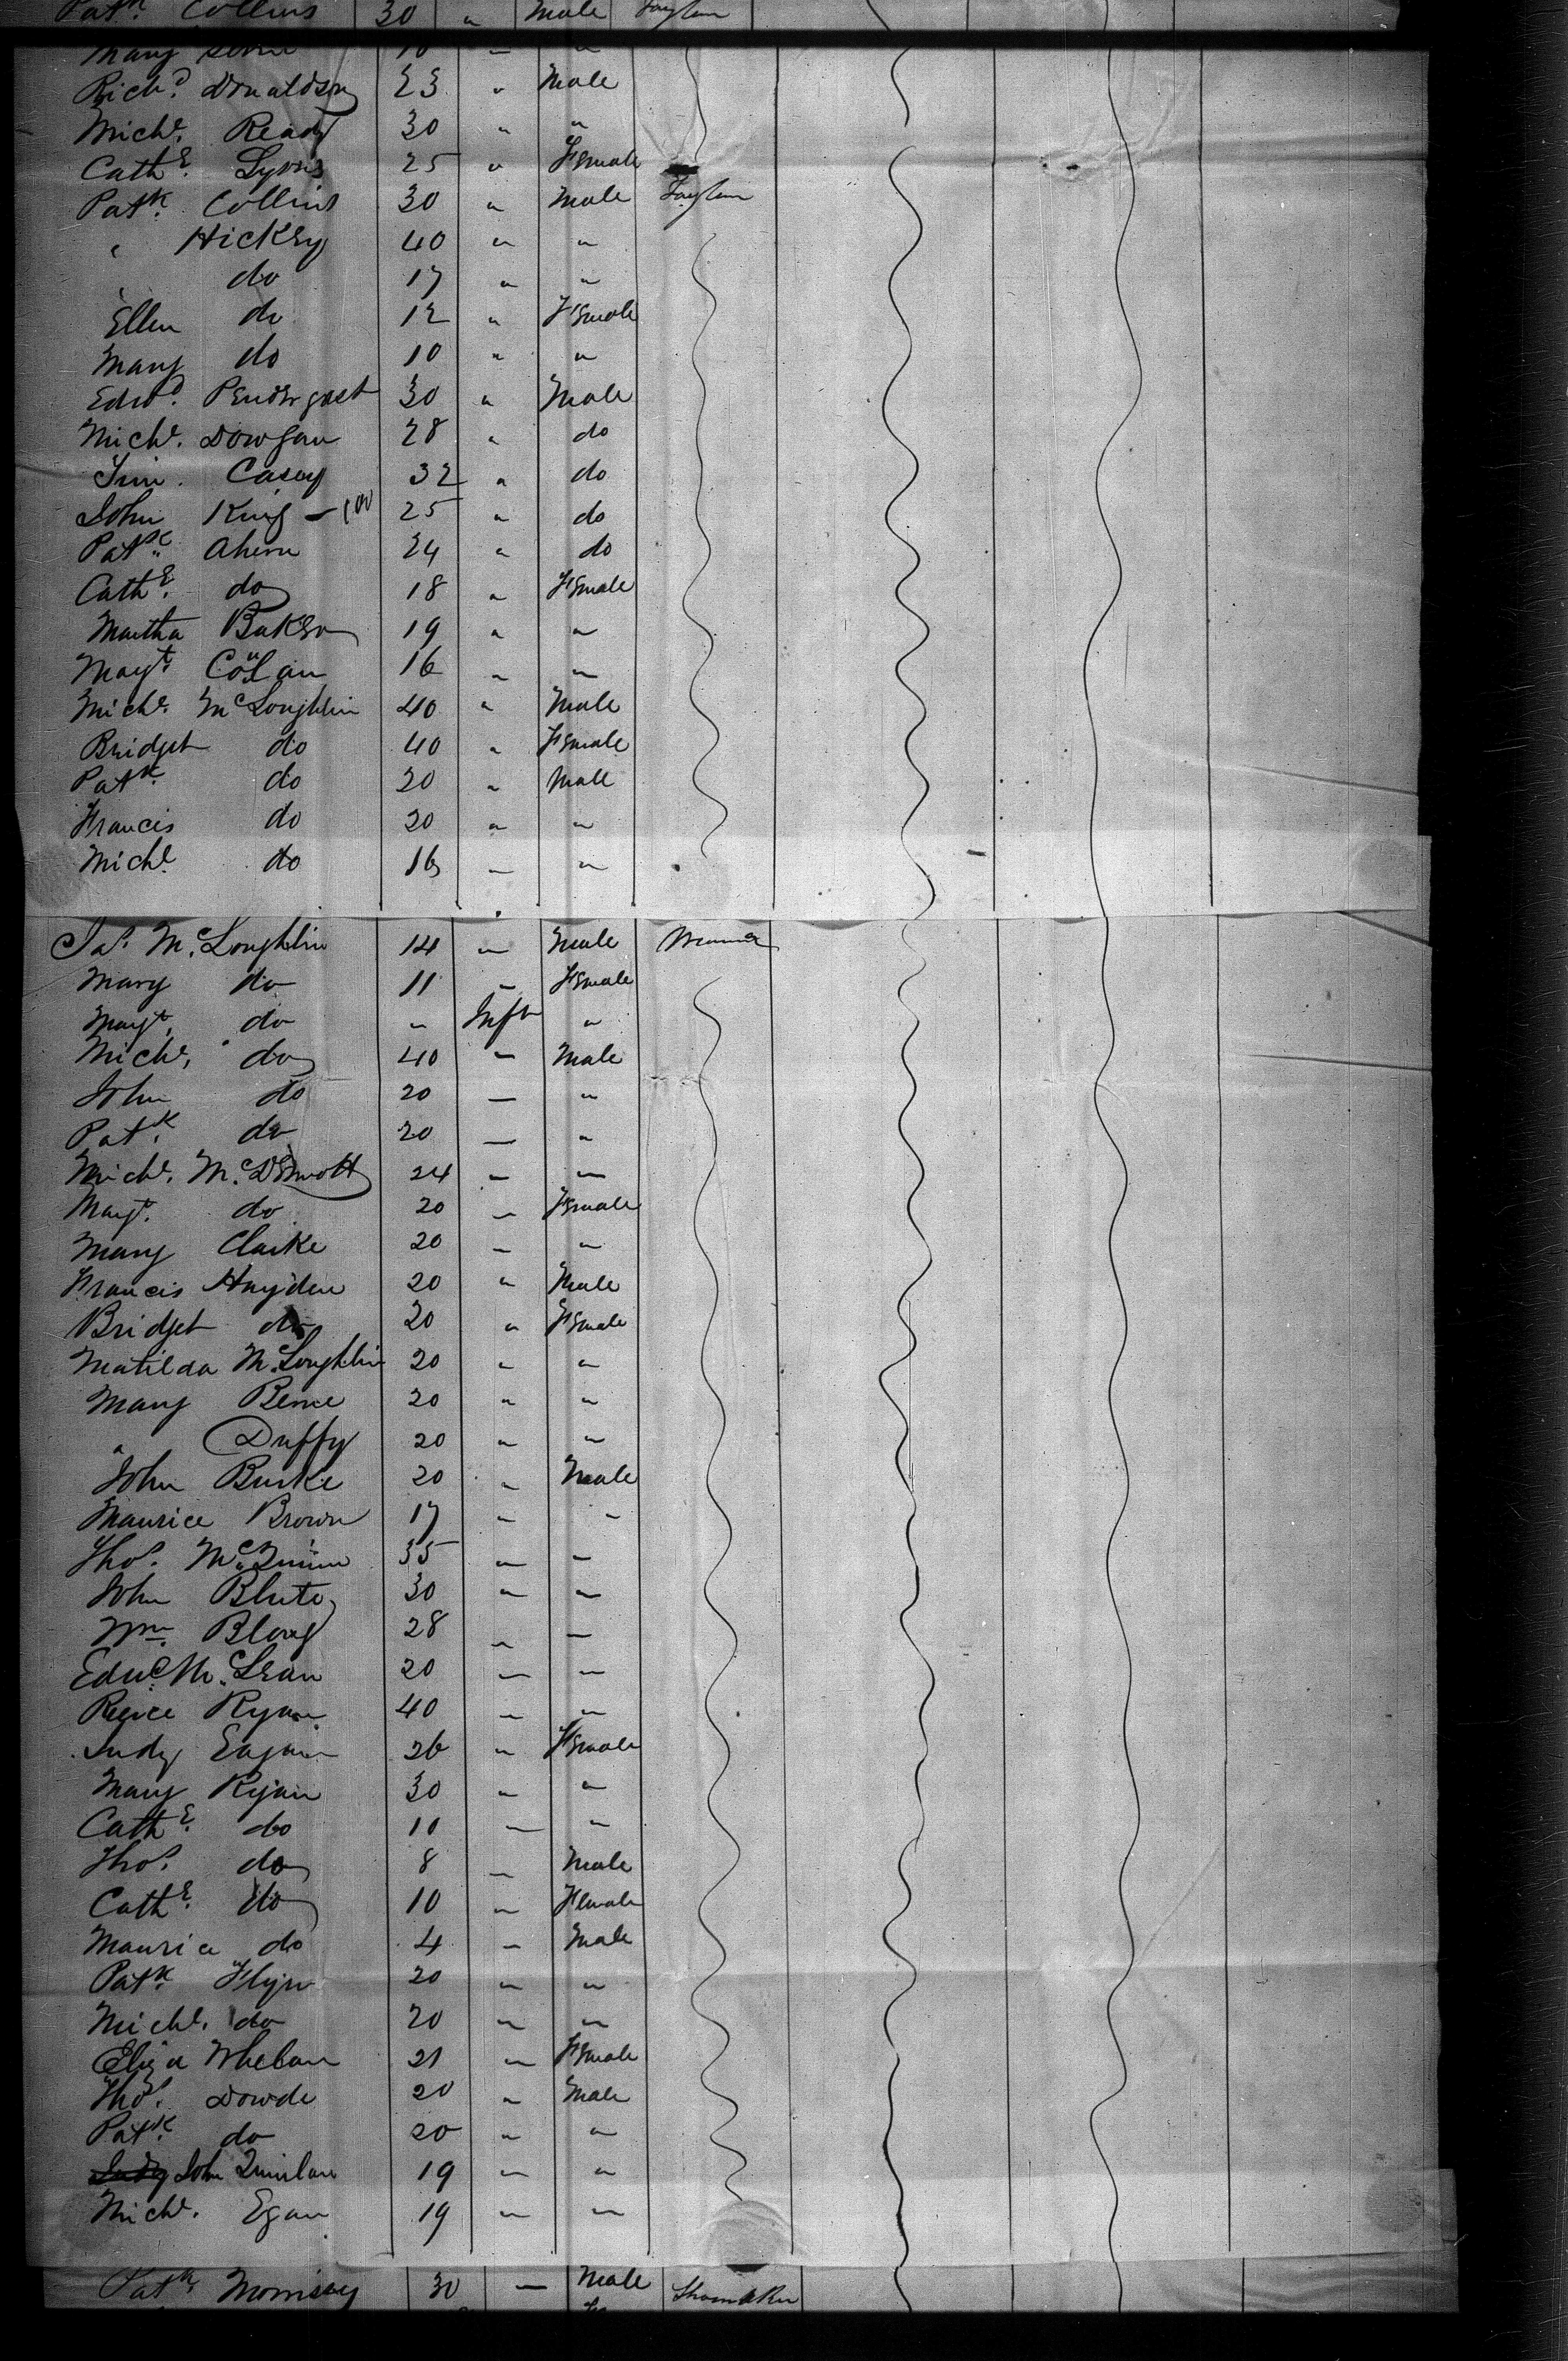 Patk Collins 30 " Male Taylor
Mary 10 — "
Richd. Donaldson 23 " Male
Michl. Ready 30 " "
Cathe. Lyons 25 " Female
Patk. Collins 30 " Male Taylor
" Hickey 40 " "
" do 17 " "
Ellen do 12 " Female
Mary do 10 " "
Edwd. Pendergast 30 " Male
Michl. Dowgan 28 " do
Tim. Casey 32 " do
John King — 100 25 " do
Patk. Ahern 24 " do
Cathe. do 18 " Female
Martha Baker 19 " "
Magt. 16 " "
Michl. McLoughlin 40 " Male
Bridget do 40 " Female
Patk. do 20 " Male
Francis do 20 " "
Michl. do 16 — "
Jas. McLoughlin 14 — Male
Mary do 11 — Female
Magt. do " Inft "
Michl. do 40 " Male
John do 20 — "
Patk. do 20 — "
Michl. McDermott 24 — "
Magt. do 20 — Female
Mary Clarke 20 — "
Francis Hayden 20 " Male
Bridget do 20 " Female
Matilda McLoughlin 20 " "
Mary Beirne 20 " "
" Duffy 20 " "
John Burke 20 " Male
Maurice Brown 17 — "
Thos. McQuinn 35 — "
John Blute 30 " "
Wm. 28 " —
Edwd. McLean 20 — "
Pierce Ryan 40 — "
Judy Eagan 26 " Female
Mary Ryan 30 " "
Cathe. do 10 — "
Thos. do 8 — Male
Cathe. do 10 " Female
Maurice do 4 " Male
Patk. Flyn 20 " "
Michl. do 20 " "
Eliza Whelan 21 " Female
Thos. Dowde 20 " Male
Patk. do 20 " "
Judy John Quinlan 19 " "
Michl. Egan 19 " "
Patk. Morrisey 30 — Male Shoemaker